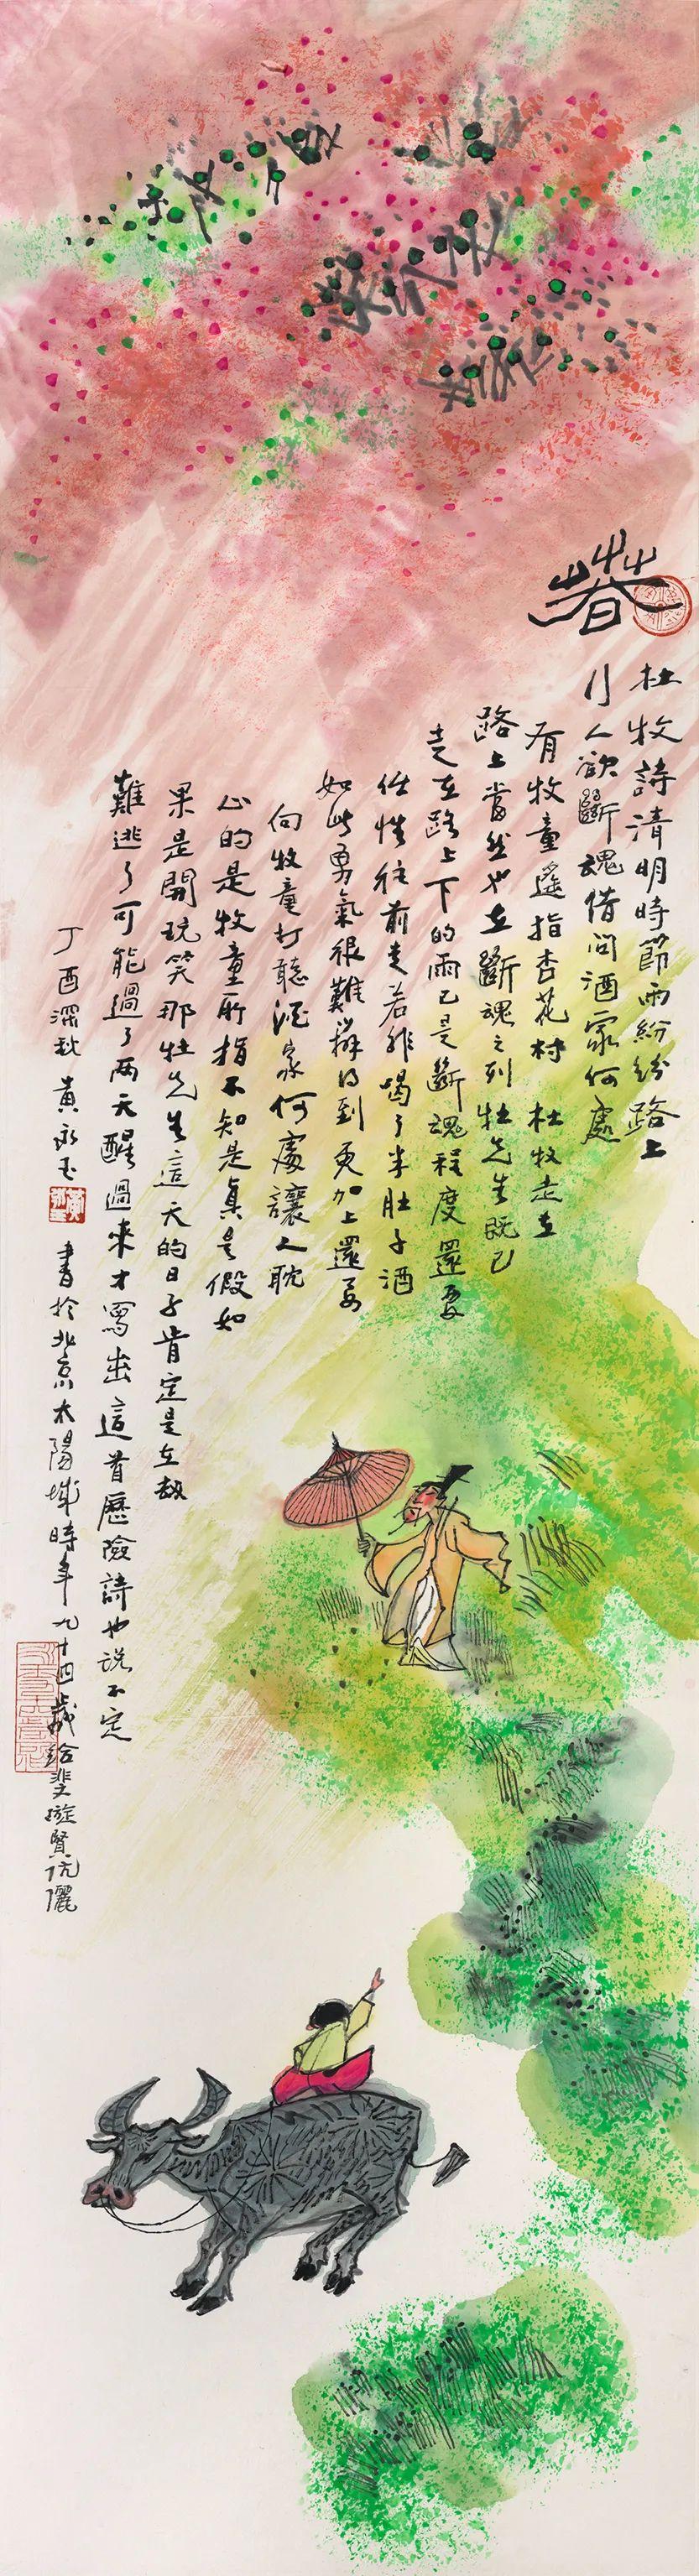 春
杜牧詩清明時節雨紛紛路上
行人欲斷魂借问酒家何處
有牧童遙指杏花村 杜牧走在
路上當然也在斷魂之列杜先生既已
走在路上下的雨已是斷魂程度還要
任性往前走若非喝了半肚子酒
如此勇氣很難辦得到更加上還要
向牧童打聽酒家何處讓人耽
心的是牧童所指不知是真是假如
果是開玩笑那杜先生這天的日子肯定是在劫
難逃了可能過了两天醒過來才寫出這首歷險詩也说不定
丁酉深秋 黄永玉 書於北京太陽城時年九十四歲给斐璇賢伉儷